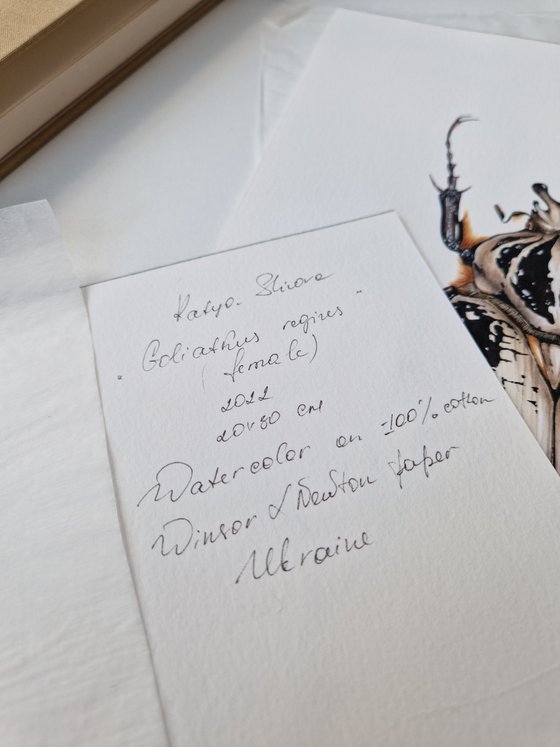 Katya Shirova
"Goliathus regius"
(female)
2022
20x30 cm
Watercolor on 100% cotton
Winsor & Newton paper
Ukraine